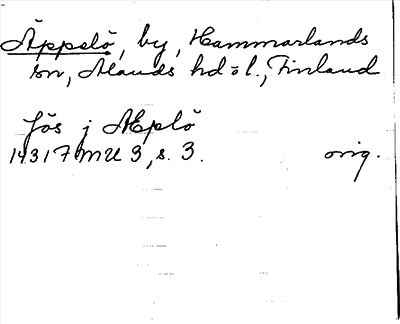 Äppelö, by, Hammarlands
sn, Ålands hd o l., Finland
Jös j Æplö
1431 7 MU 3, s. 3. orig.